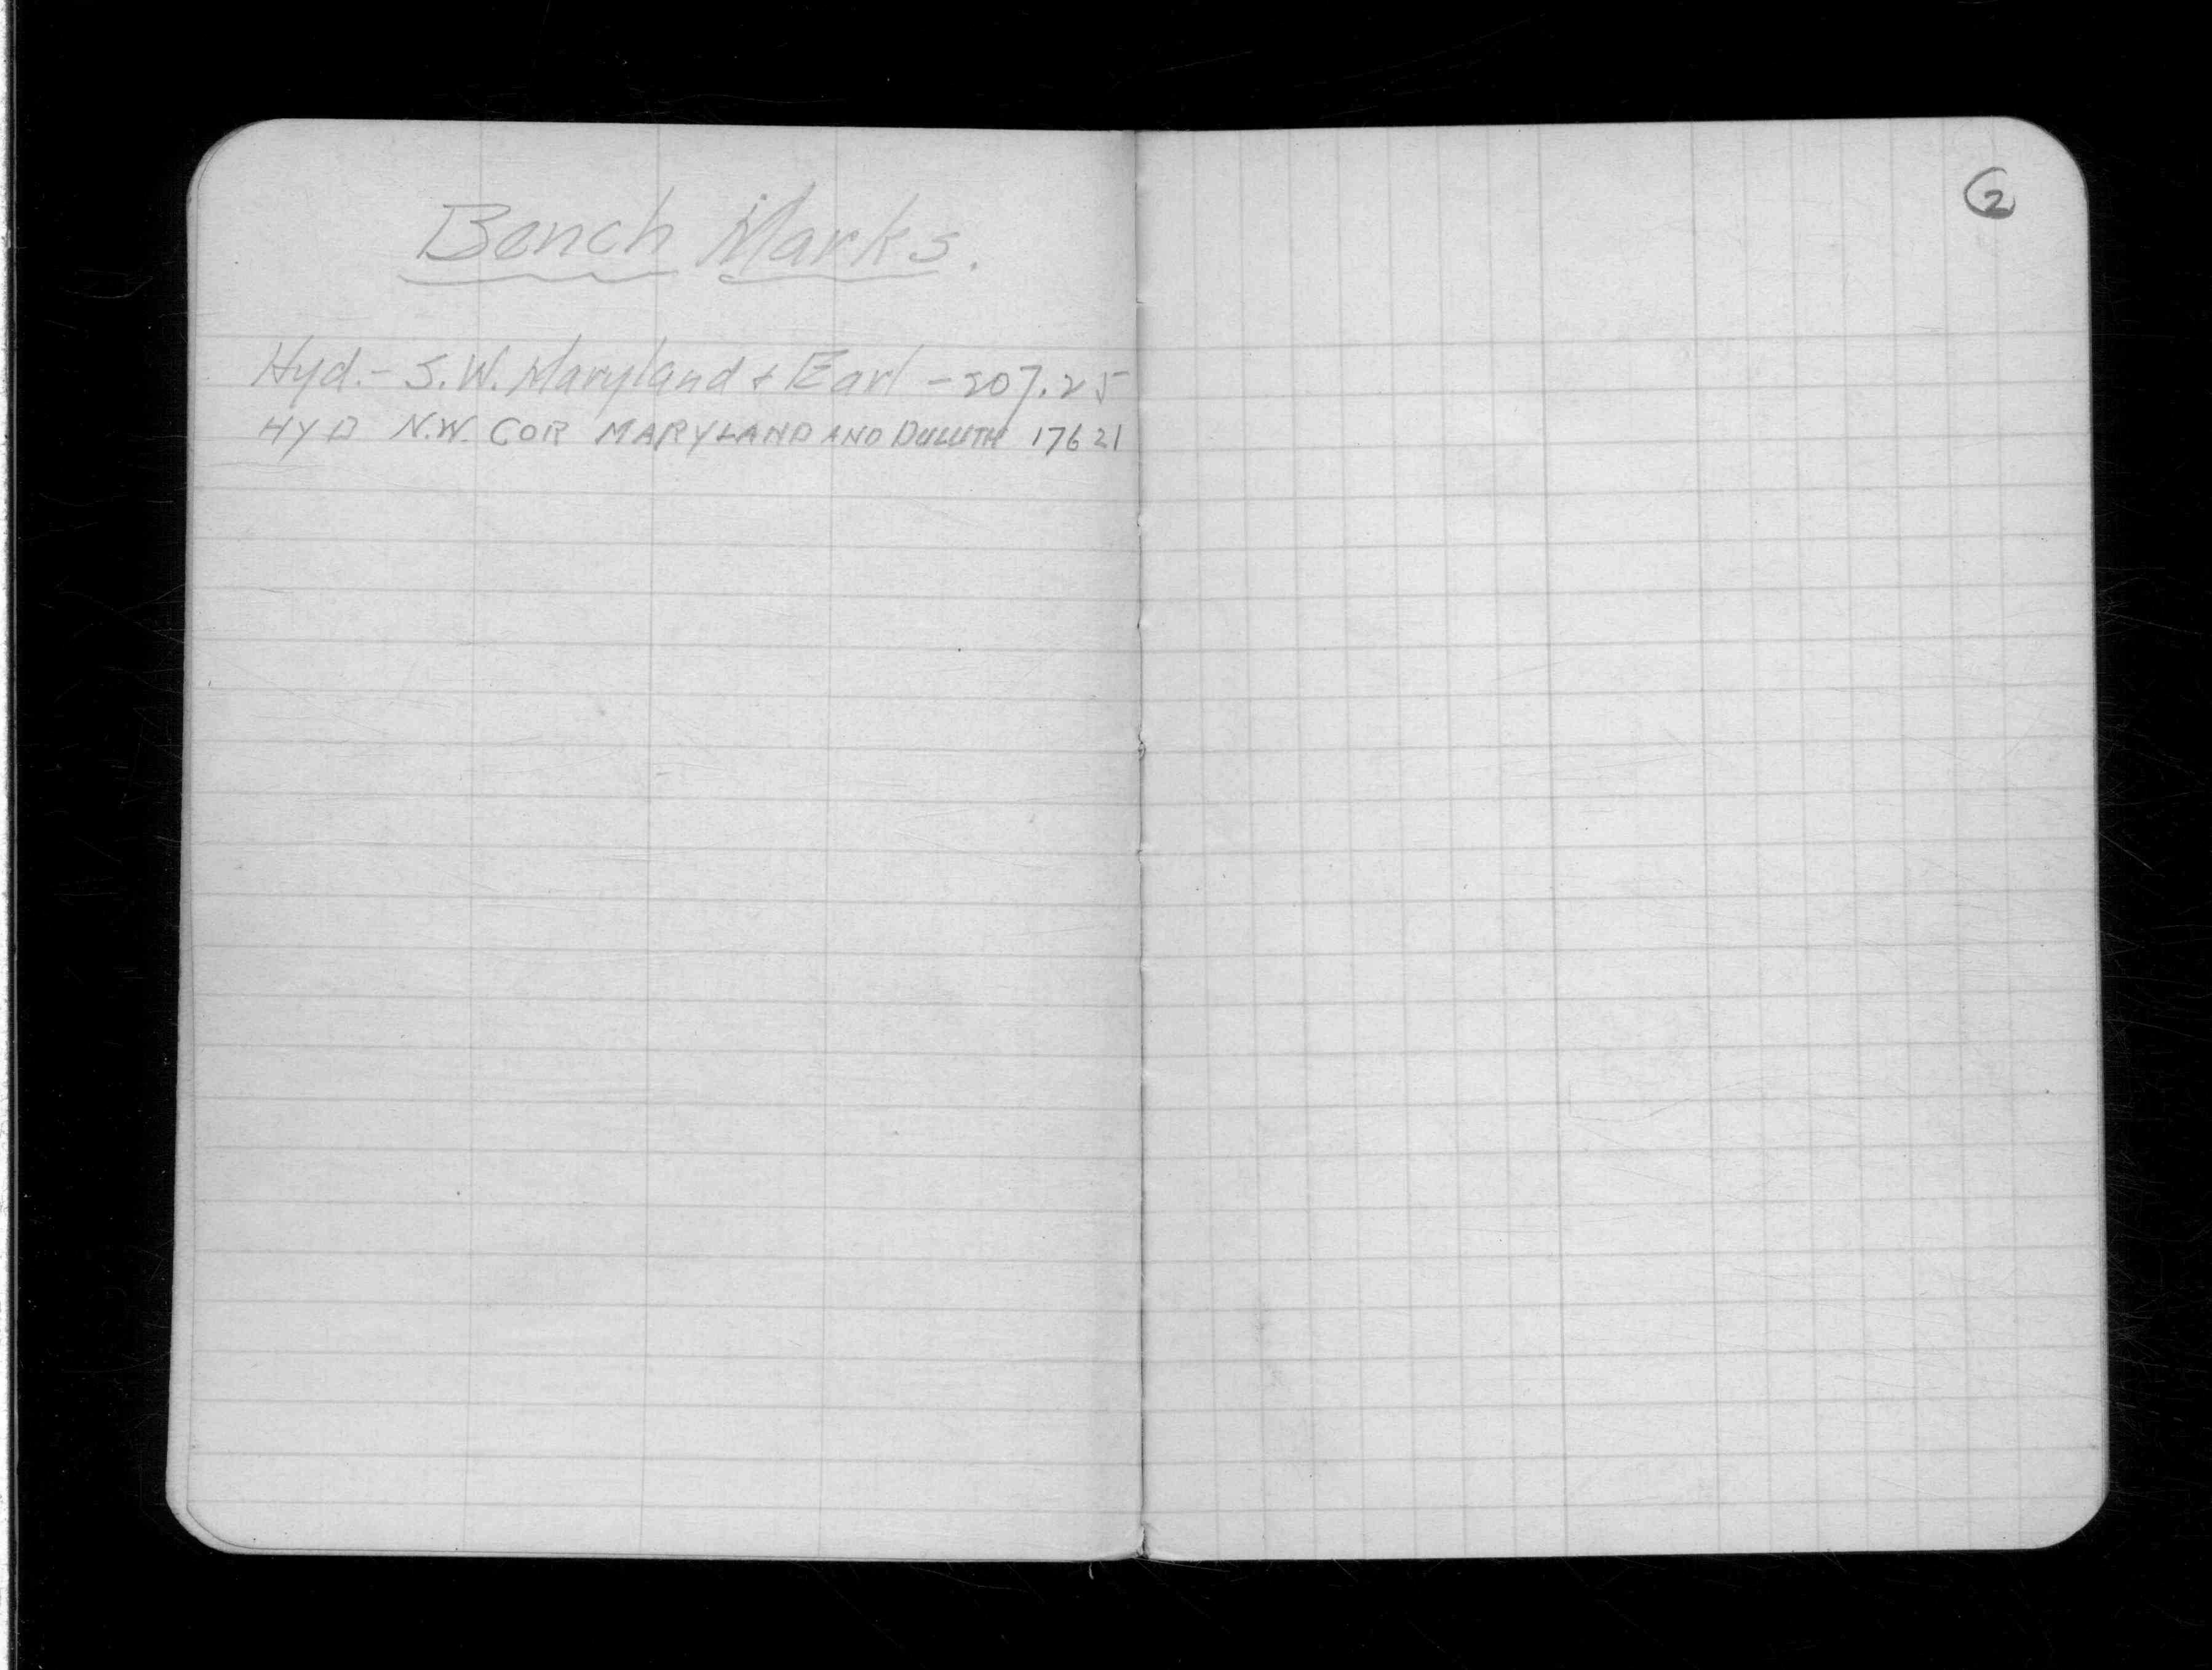 Bench Marks.
Hyd.- S.W. Maryland & Earl - 207.25
HYD N.W. COR MARYLAND AND DULUTH 176 21
2